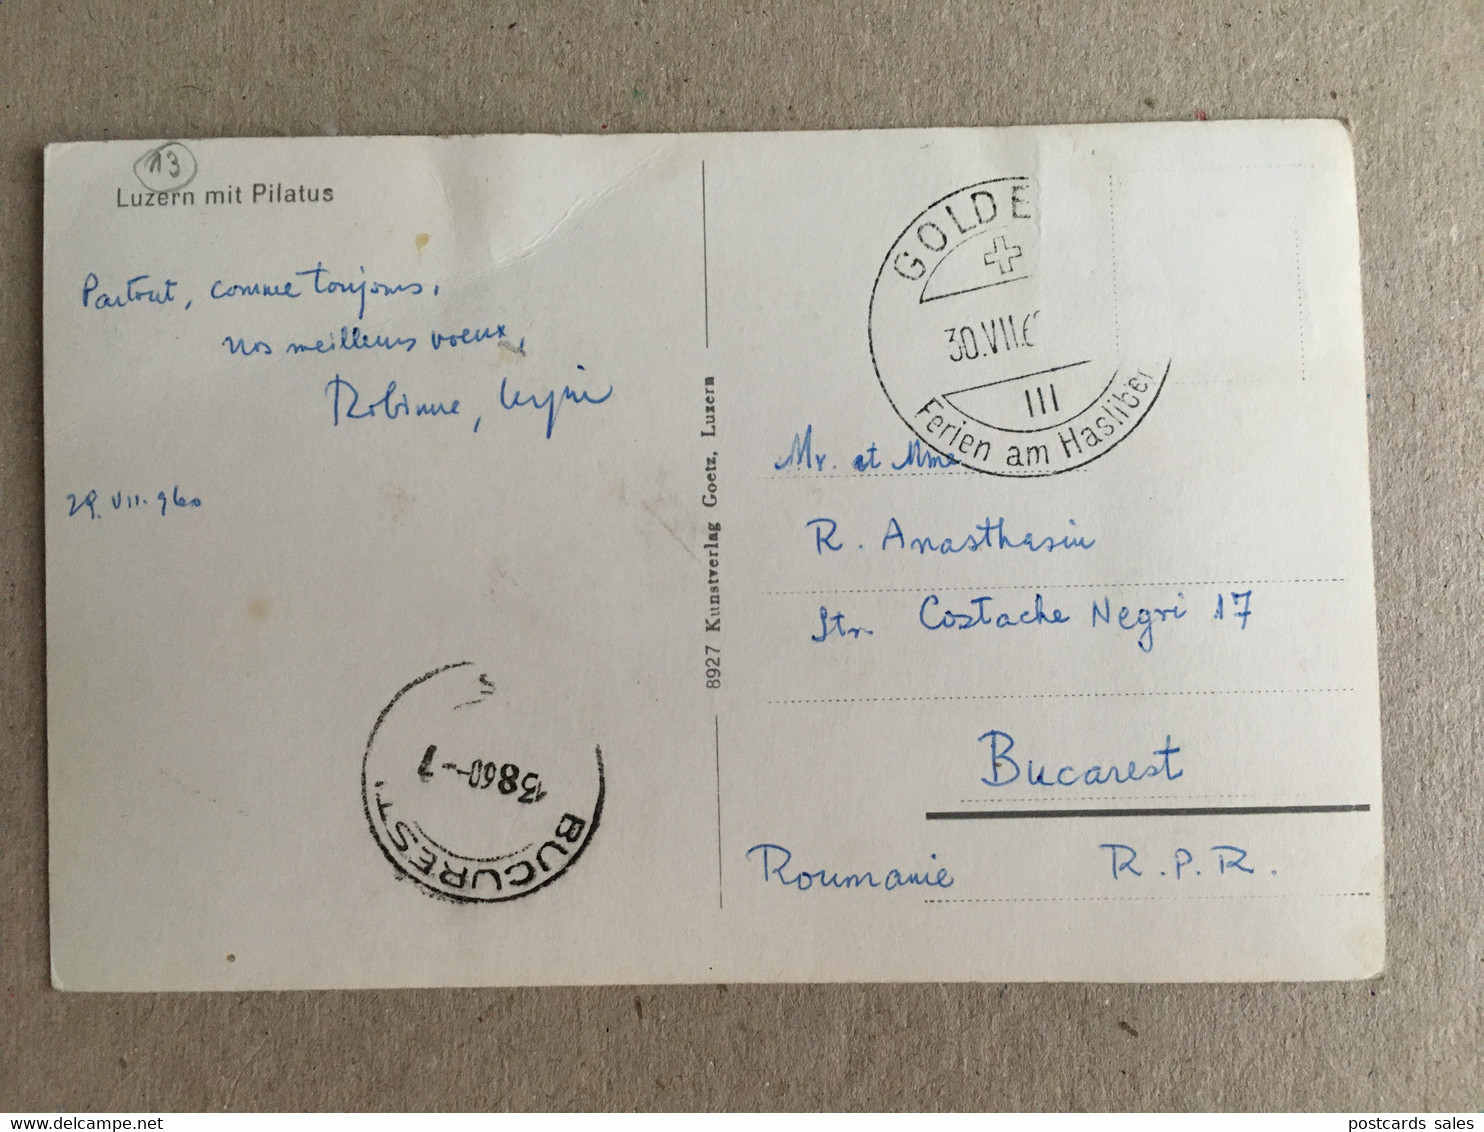 13
Luzern mit Pilatus
Partout, comme toujours,
nos meilleurs voeux,
29.VII.960
8927 Kunstverlag Goetz, Luzern
GOLDE
30.VII.6
III
Ferien am Hasliber
Mr. et Mme
R. Anasthasiu
Str. Costache Negri 17
Bucarest
Roumanie R.P.R.
13 8 60 - 7
BUCUREST
postcards sales